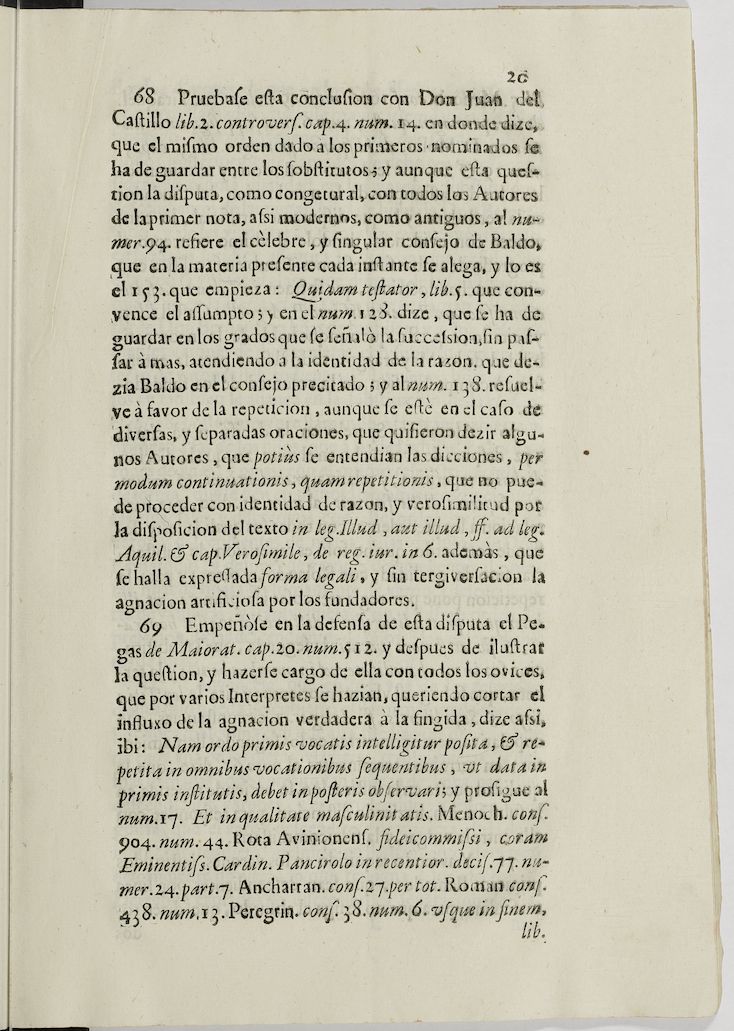 20
68 Pruebase esta conclusion con Don Juan del
Castillo lib.2. controvers. cap.4. num. 14. en donde dize,
que el mismo orden dado a los primeros nominados se
ha de guardar entre los sobstitutos; y aunque esta ques-
tion la disputa, como congetural, con todos los Autores
de la primer nota, assi modernos, como antiguos, al nu-
mer.94. refiere el cèlebre, y singular consejo de Baldo,
que en la materia presente cada instante se alega, y lo es
el 153. que empieza: Quidam testator, lib.5. que con-
vence el assumpto; y en el num. 128. dize, que se ha de
guardar en los grados que se señalò la succession, sin pas-
sar à mas, atendiendo a la identidad de la razon, que de-
zia Baldo en el consejo precitado; y al num. 138. resuel-
ve à favor de la repeticion, aunque se estè en el caso de
diversas, y separadas oraciones, que quisieron dezir algu-
nos Autores, que potiùs se entendian las dicciones, per
modum continuationis, quam repetitionis, que no pue-
de proceder con identidad de razon, y verosimilitud por
la disposicion del texto in leg. Illud, aut illud, ff. ad leg.
Aquil. & cap. Verosimile, de reg. iur. in 6. además, que
se halla expressada forma legali, y sin tergiversacion la
agnacion artificiosa por los fundadores.
69 Empeñòse en la defensa de esta disputa el Pe-
gas de Maiorat. cap.20. num.512. y despues de ilustrar
la question, y hazerse cargo de ella con todos los ovices,
que por varios Interpretes se hazian, queriendo cortar el
influxo de la agnacion verdadera à la fingida, dize assi,
ibi: Nam ordo primis vocatis intelligitur posita, & re-
petita in omnibus vocationibus sequentibus, vt data in
primis institutis, debet in posteris observari; y prosigue al
num.17. Et in qualitate masculinitatis. Menoch. cons.
904. num. 44. Rota Avinionens. fideicommissi, coram
Eminentiss. Cardin. Pancirolo in recentior. decis.77. nu-
mer.24. part.7. Ancharran. cons.27. per tot. Roman cons.
438. num.13. Peregrin. cons. 38. num. 6. vsque in finem,
lib.